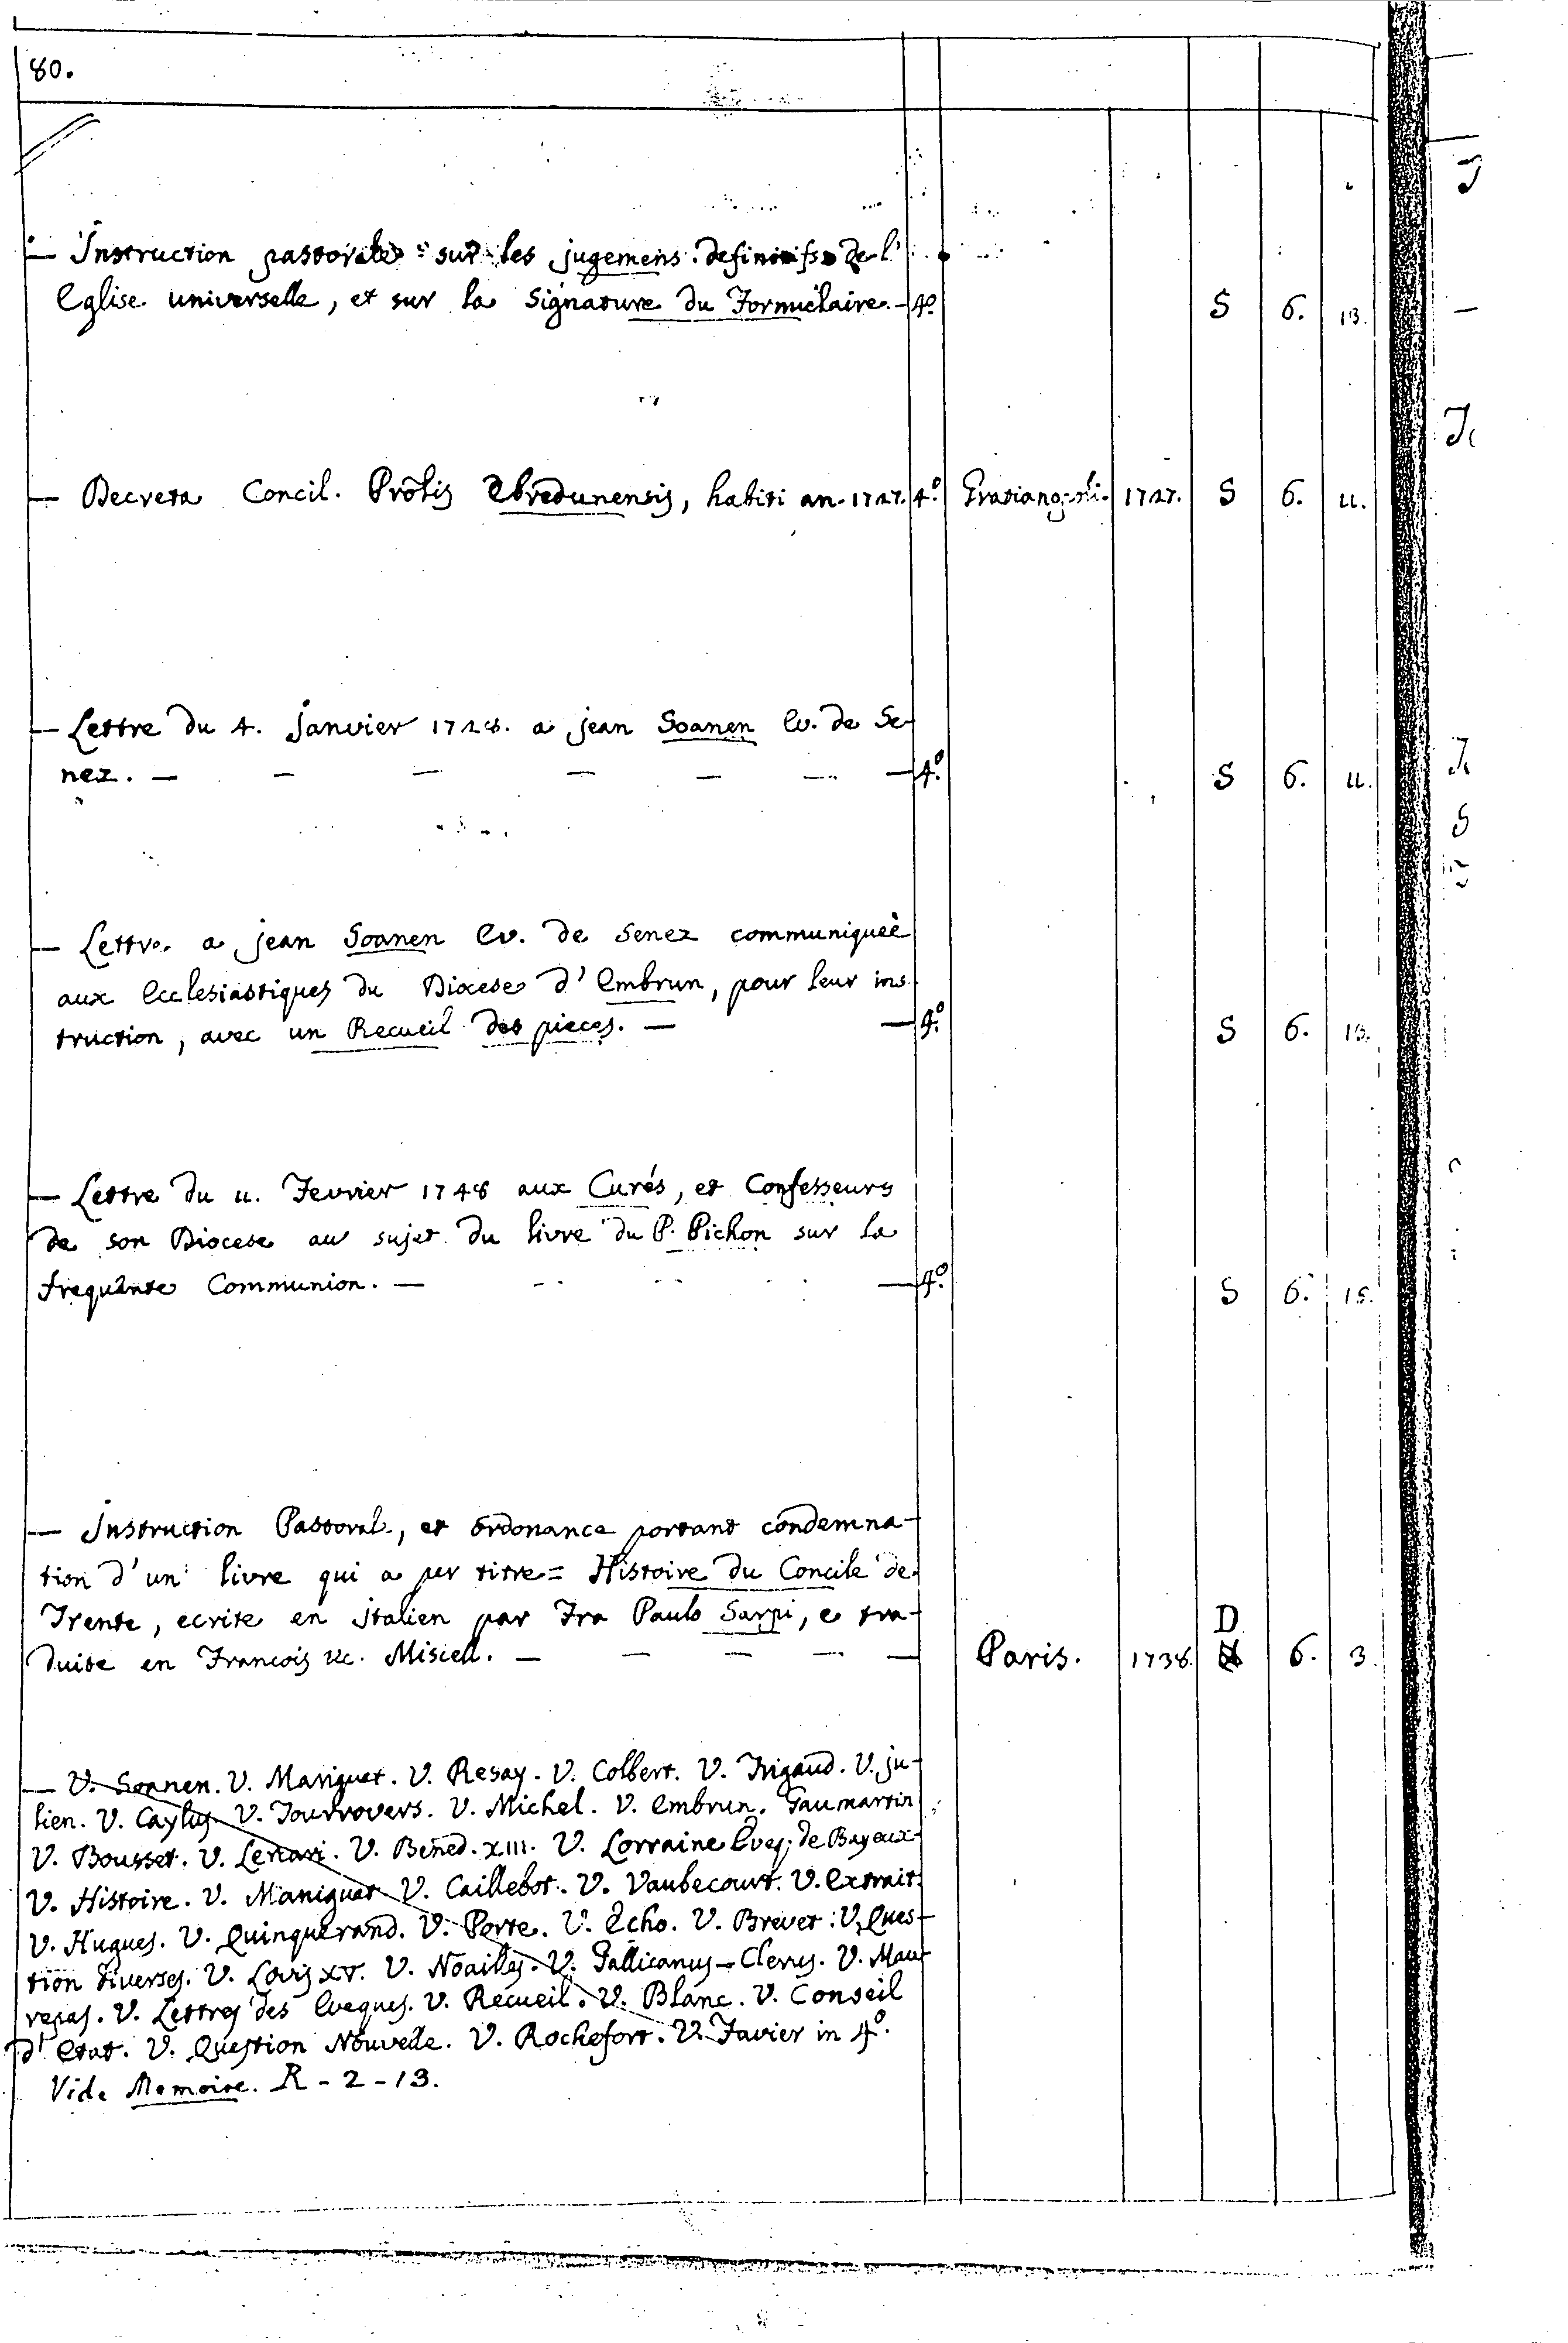 80.
— Instruction pastorale sur les jugemens definitifs de l'
Eglise universelle, et sur la Signature du Formulaire. — 4.º S 6. 13.
— Decreta Concil. Prôlis Ebredunensis, habiti an. 1727. 4.º 1727. S 6. 11.
— Lettre du 4. Janvier 1728. a jean Soanen Ev. de Se-
nez. — — — — — — — 4.º S 6. 11.
— Lettre. a jean Soanen Ev. de Senez communiqueè
aux Ecclesiastiques du Diocese d'Embrun, pour leur ins
truction, avec un Recueil des pieces. — — 4.º S 6. 13.
— Lettre du 11. Fevrier 1748 aux Curés, et Confesseurs
de son Diocese au sujet du livre du P. Pichon sur la
frequante Communion. — — 4.º S 6. 15.
— Instruction Pastoral., et ordonance portant condemna-
tion d'un livre qui a per titre = Histoire du Concile de
Trente, ecrite en italien par Fra Paulo Sarpi, e tra-
duite en Francois &c. Miscell. — — — — — Paris. 1738. D 6. 3.
— V. Soanen. V. Maniguet. V. Resay. V. Colbert. V. Trigaud. V. ju-
lien. V. Caylus. V. Tourrovers. V. Michel. V. Embrun. Gaumartin
V. Bousset. V. V. Bened. XIII. V. Lorraine Eveq. de Bayeux
V. Histoire. V. Maniguet V. Caillebot. V. Vaubecourt. V. Extrait
V. Hugues. V. Quinquerand. V. Porte. V. Echo. V. Brevet. V. Ques-
tion diverses. V. Lovis XV. V. Noailles. V. Gallicanus-Clerus. V. Mau-
repas. V. Lettres des Eveques. V. Recueil. V. Blanc. V. Conseil
d'Etat. V. Question Nouvelle. V. Rochefort. V. Favier in 4.º
Vide Memoire. R - 2 - 13.